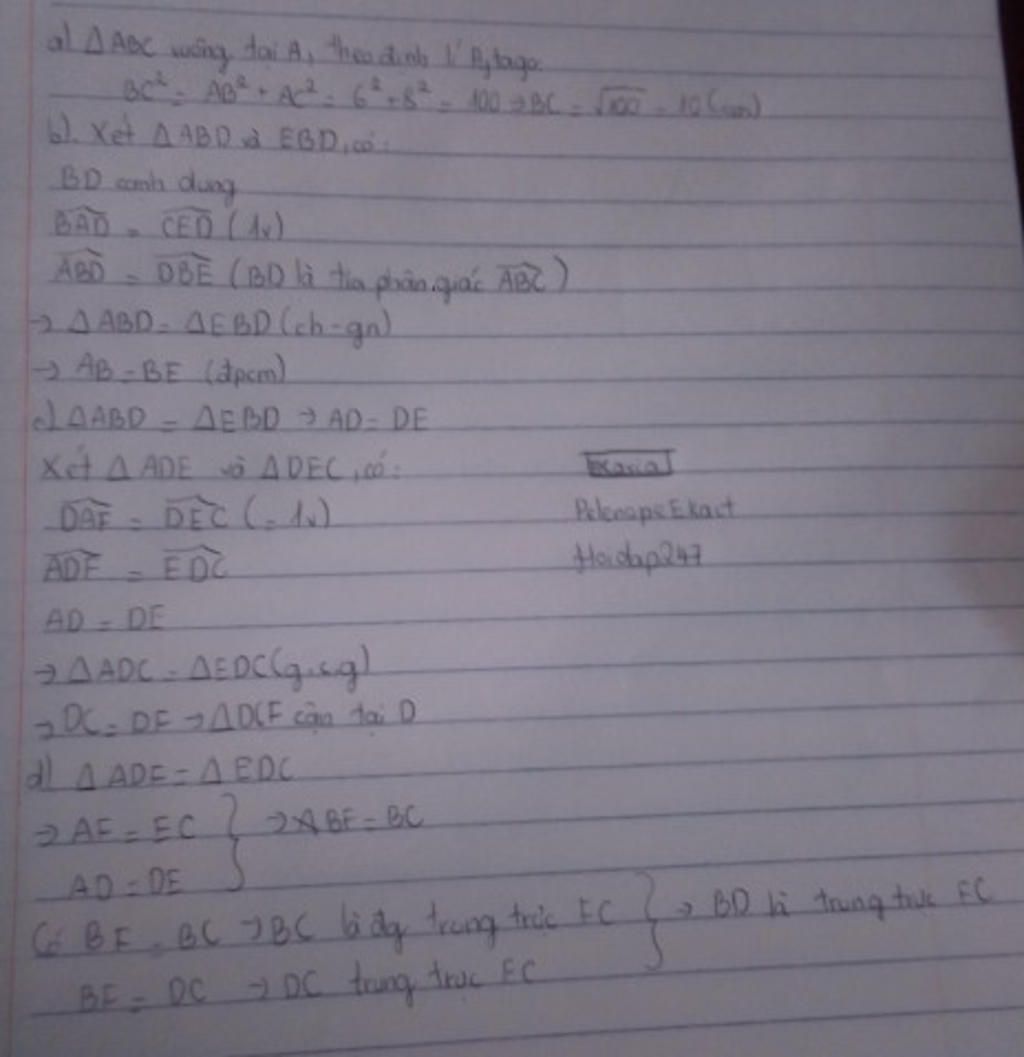 a) ΔABC vuông tại A, theo định lí Pytago:
BC² = AB² + AC² = 6² + 8² = 100 → BC = √100 = 10 (cm)
b). Xét ΔABD và EBD, có:
BD cạnh chung
BAD = CED (1v)
ABD = DBE (BD là tia phân giác ABC)
→ ΔABD = ΔEBD (ch-gn)
→ AB = BE (đpcm)
c) ΔABD = ΔEBD → AD = DE
Xét ΔADE và ΔDEC, có:
DAF = DEC (= 1v)
ADF = EDC
AD = DE
→ ΔADC = ΔEDC (g.c.g)
→ DC = DF → ΔDCF cân tại D
Pelenope Ekact
Hoidap247
d) ΔADE = ΔEDC
→ AF = EC } → BF = BC
AD = DE
Có BF = BC → BC là đg trung trực FC } → BD là trung trực FC
BF = DC → DC trung trực FC